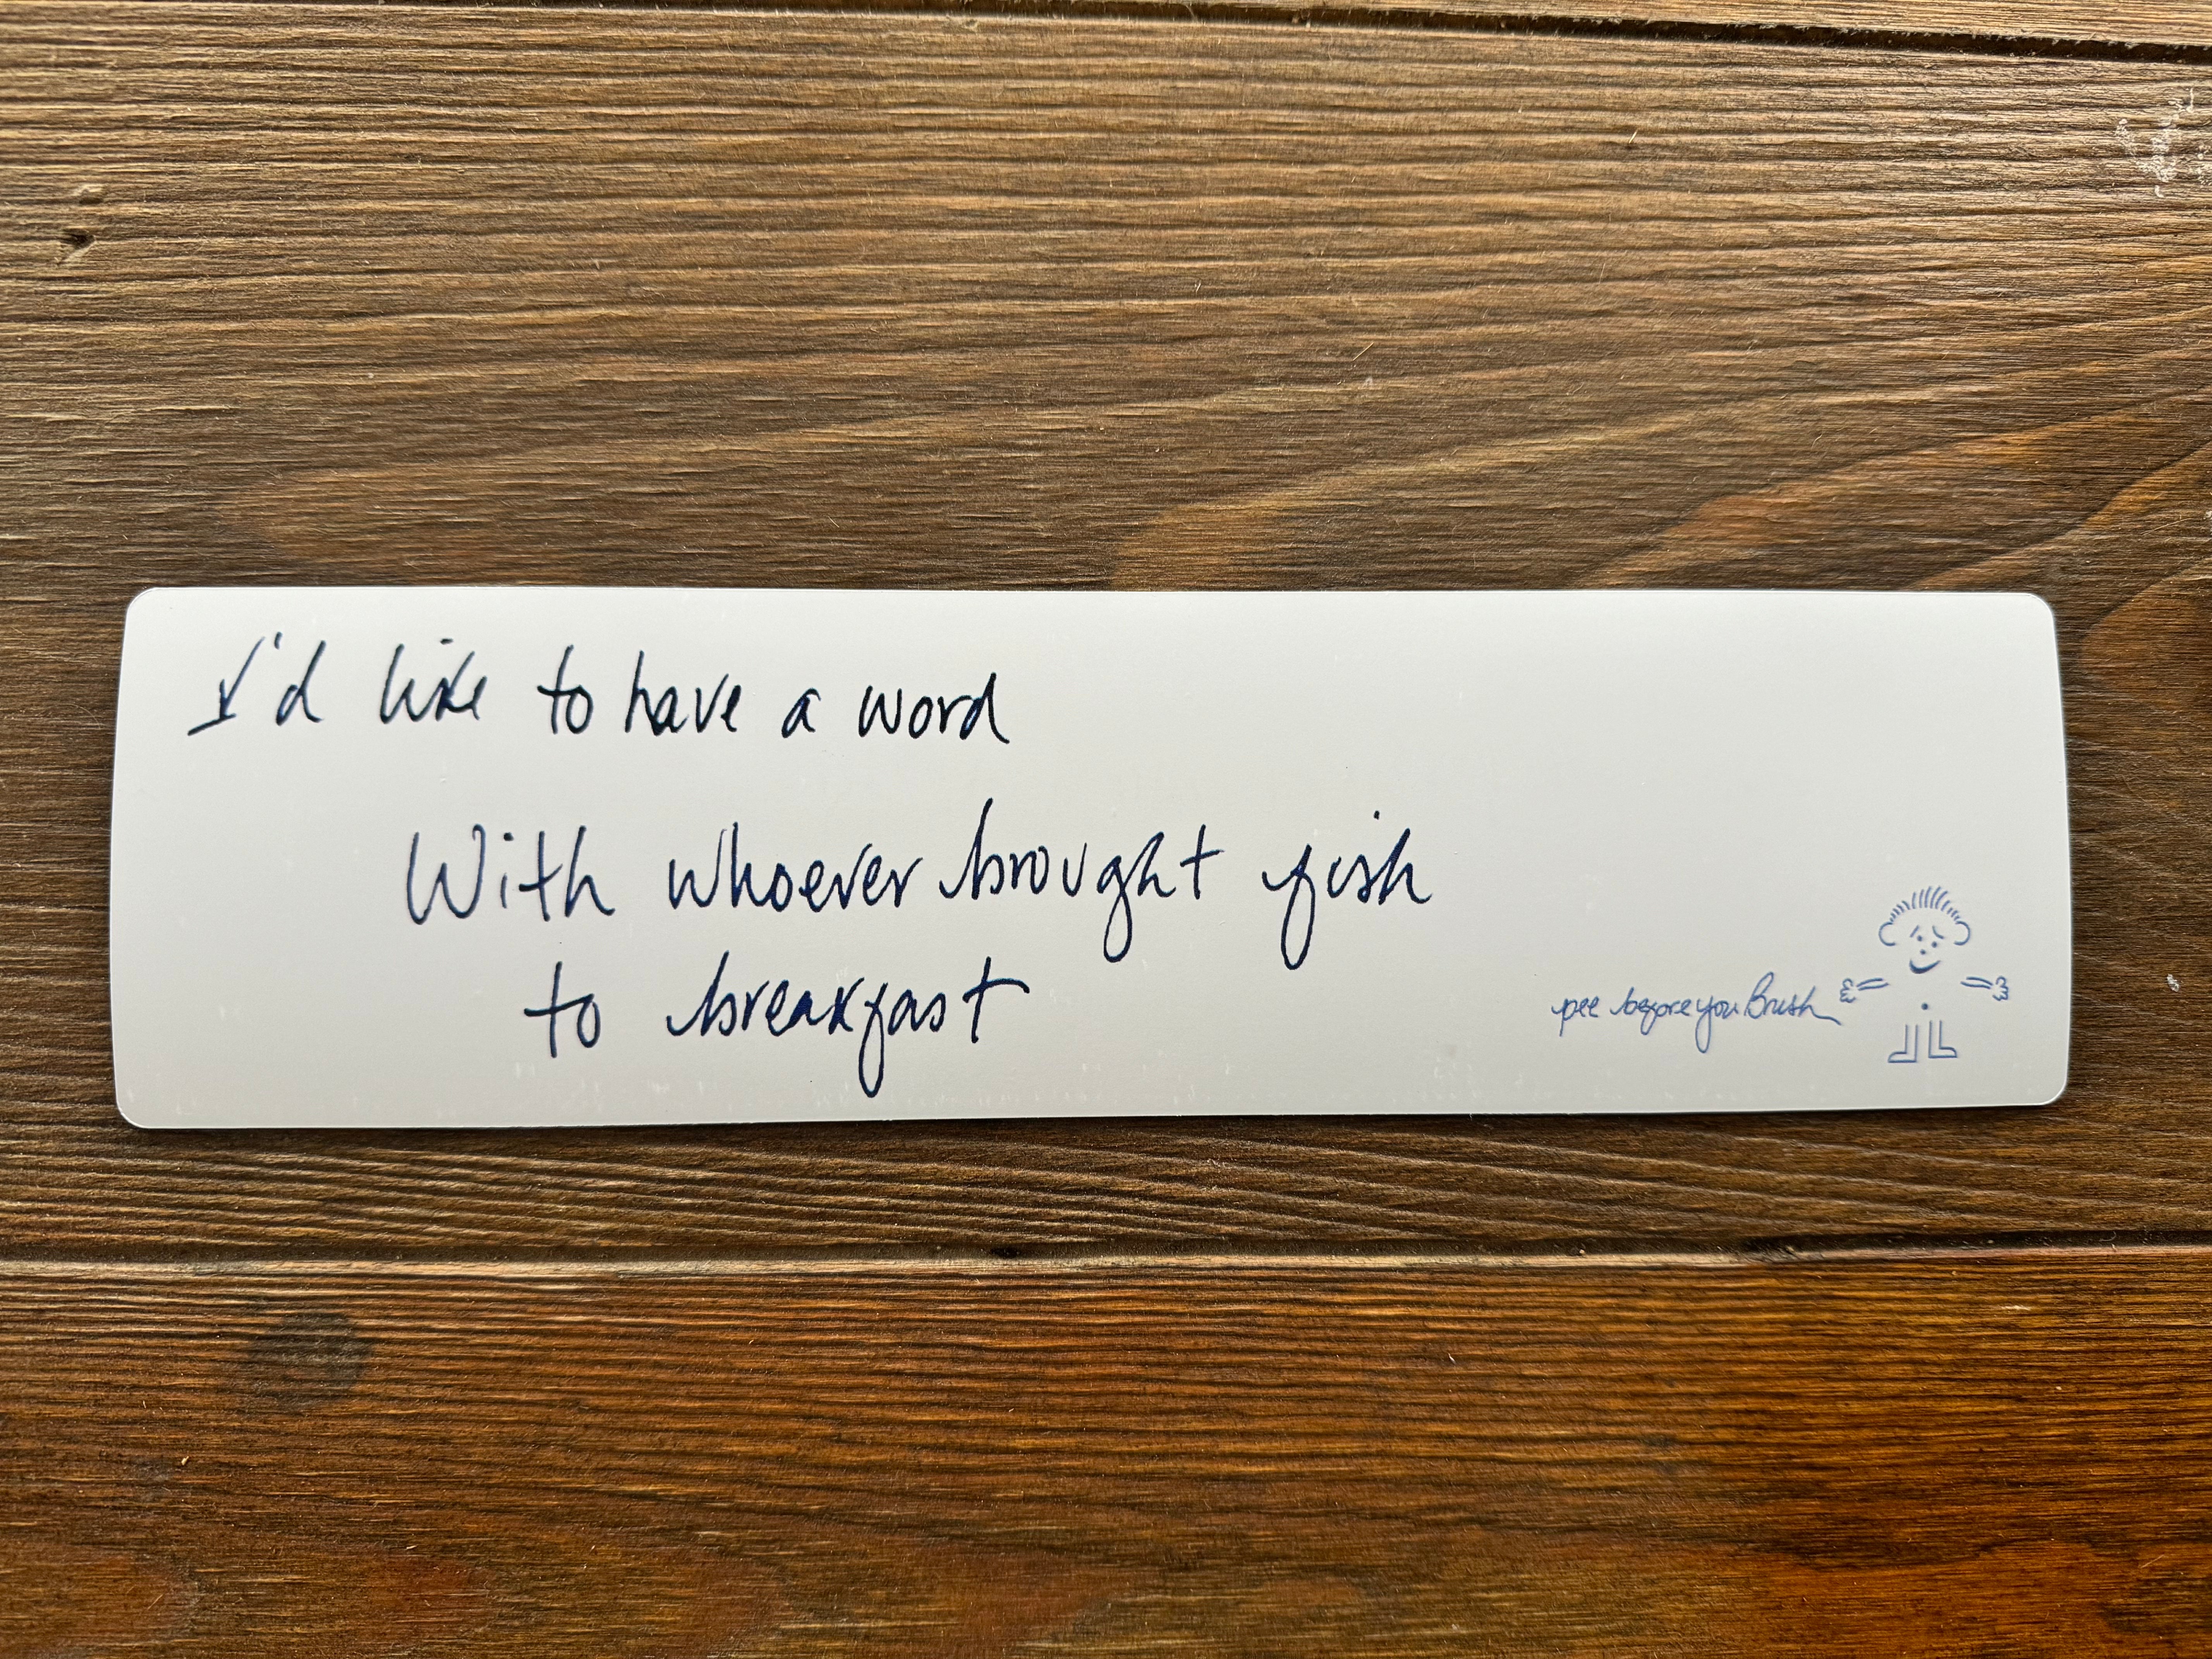 I'd like to have a word
With whoever brought fish
to breakfast
pee before you Brush